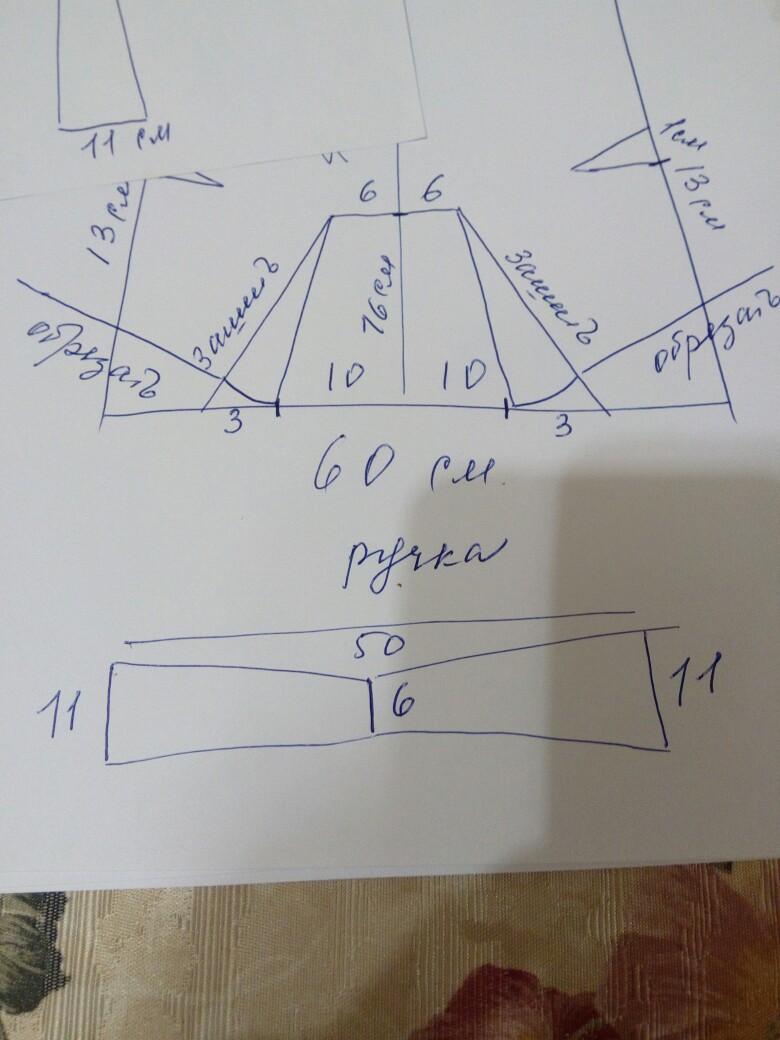 11 см
1см
13 см
13 см
6 6
зашить
зашить
16 см
обрезать
обрезать
10 10
3 3
60 см.
ручка
50
11 6 11